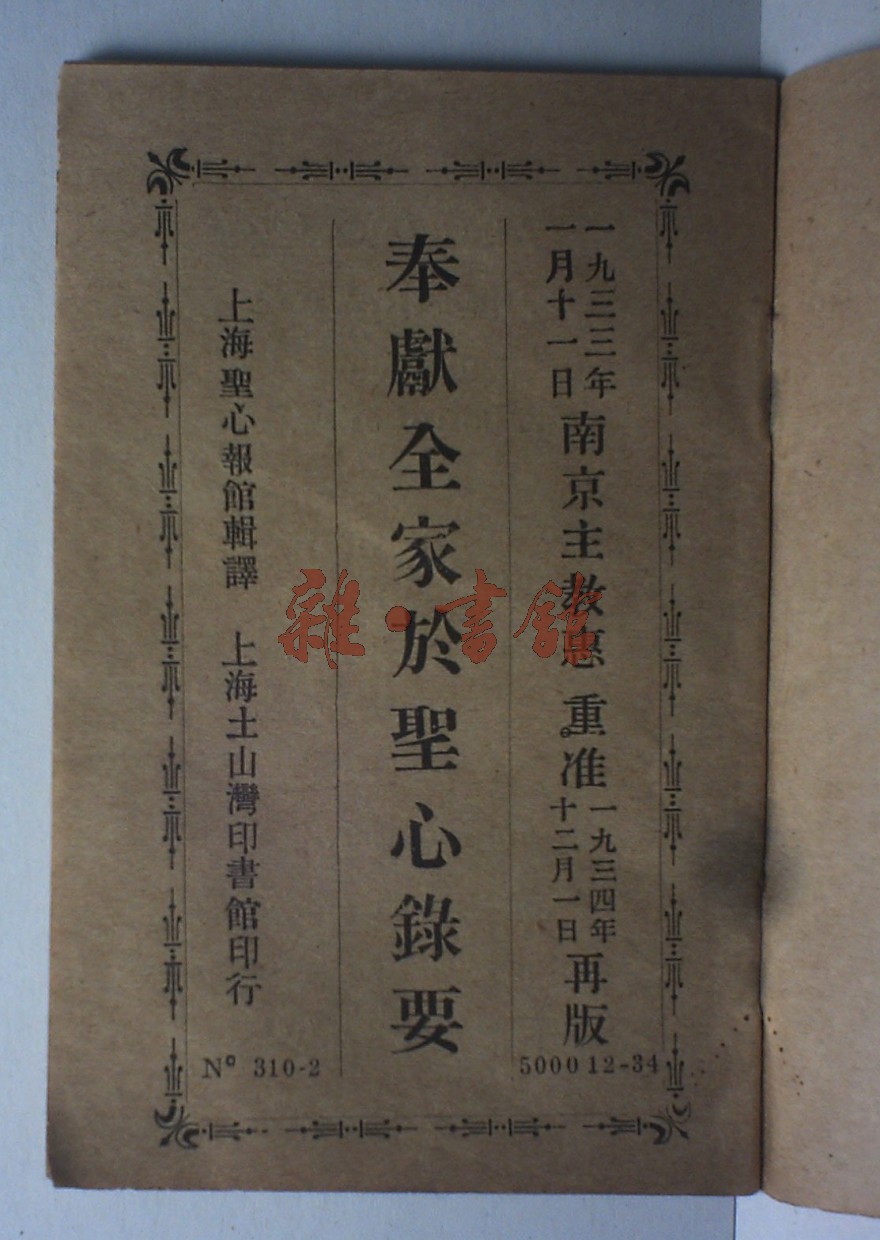 一九三三年
一月十一日
南京主教惠 重准
一九三四年
十二月一日
再版
奉獻全家於聖心錄要
上海聖心報館輯譯 上海土山灣印書館印行
5000 12-34
Nº 310-2
雜·書館